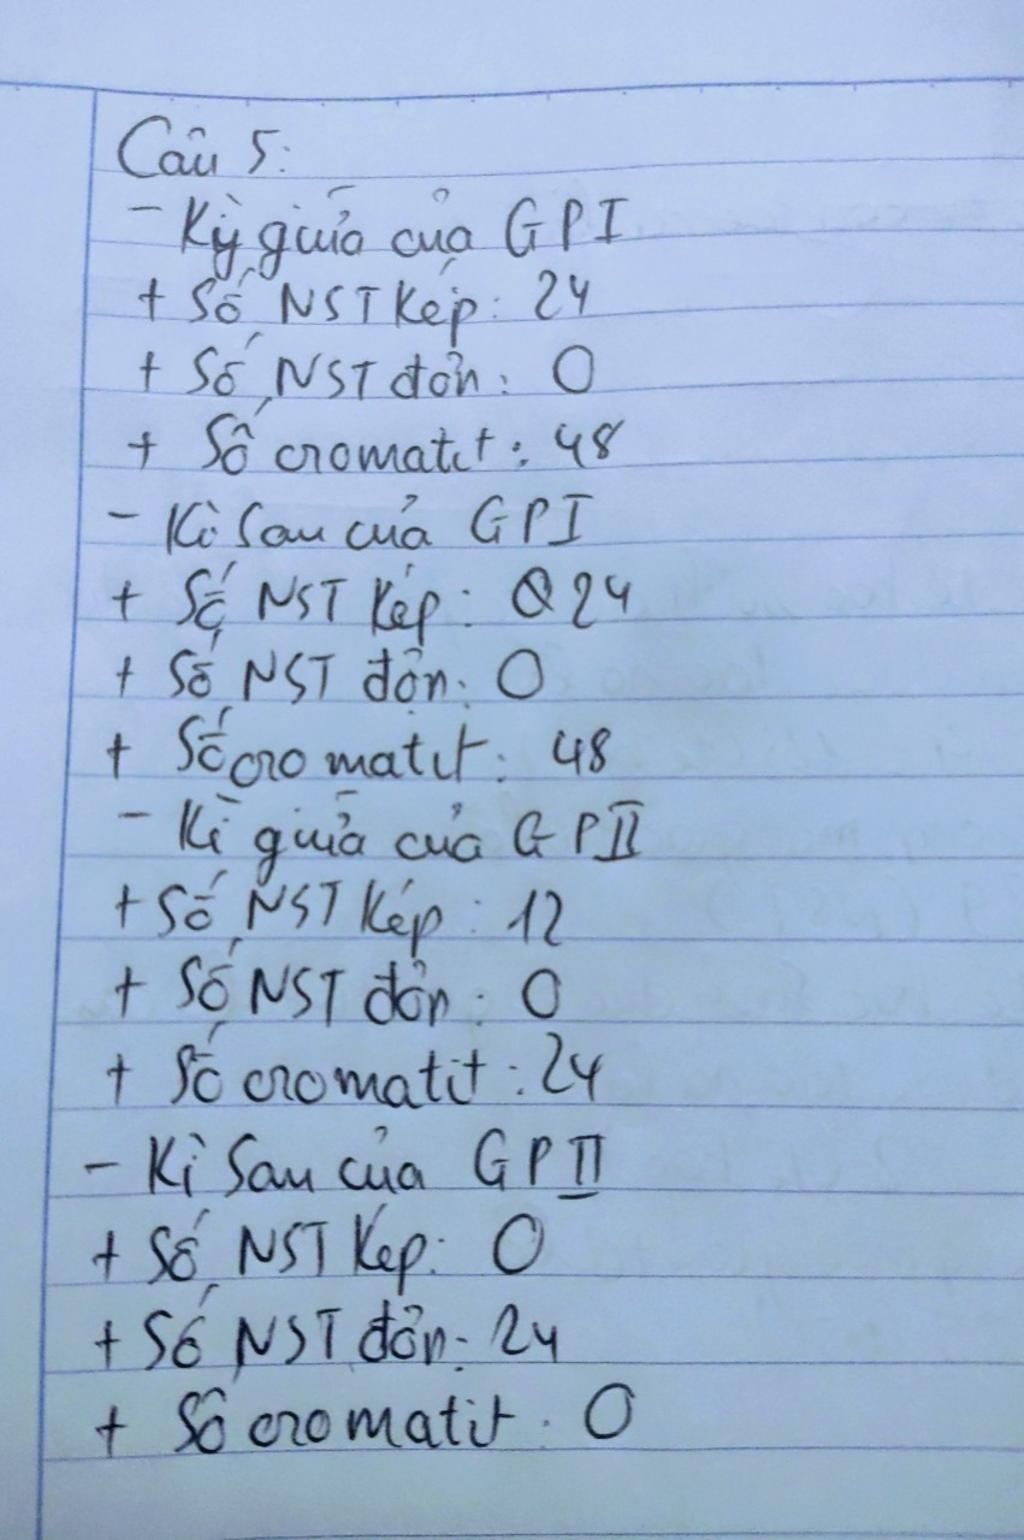 Câu 5:
- Kỳ giữa của GPI
+ Số NST kép: 24
+ Số NST đơn: 0
+ Số cromatit: 48
- Kì sau của GPI
+ Số NST kép: 24
+ Số NST đơn: 0
+ Số cromatit: 48
- Kì giữa của GPII
+ Số NST kép: 12
+ Số NST đơn: 0
+ Số cromatit: 24
- Kì sau của GPII
+ Số NST kép: 0
+ Số NST đơn: 24
+ Số cromatit: 0